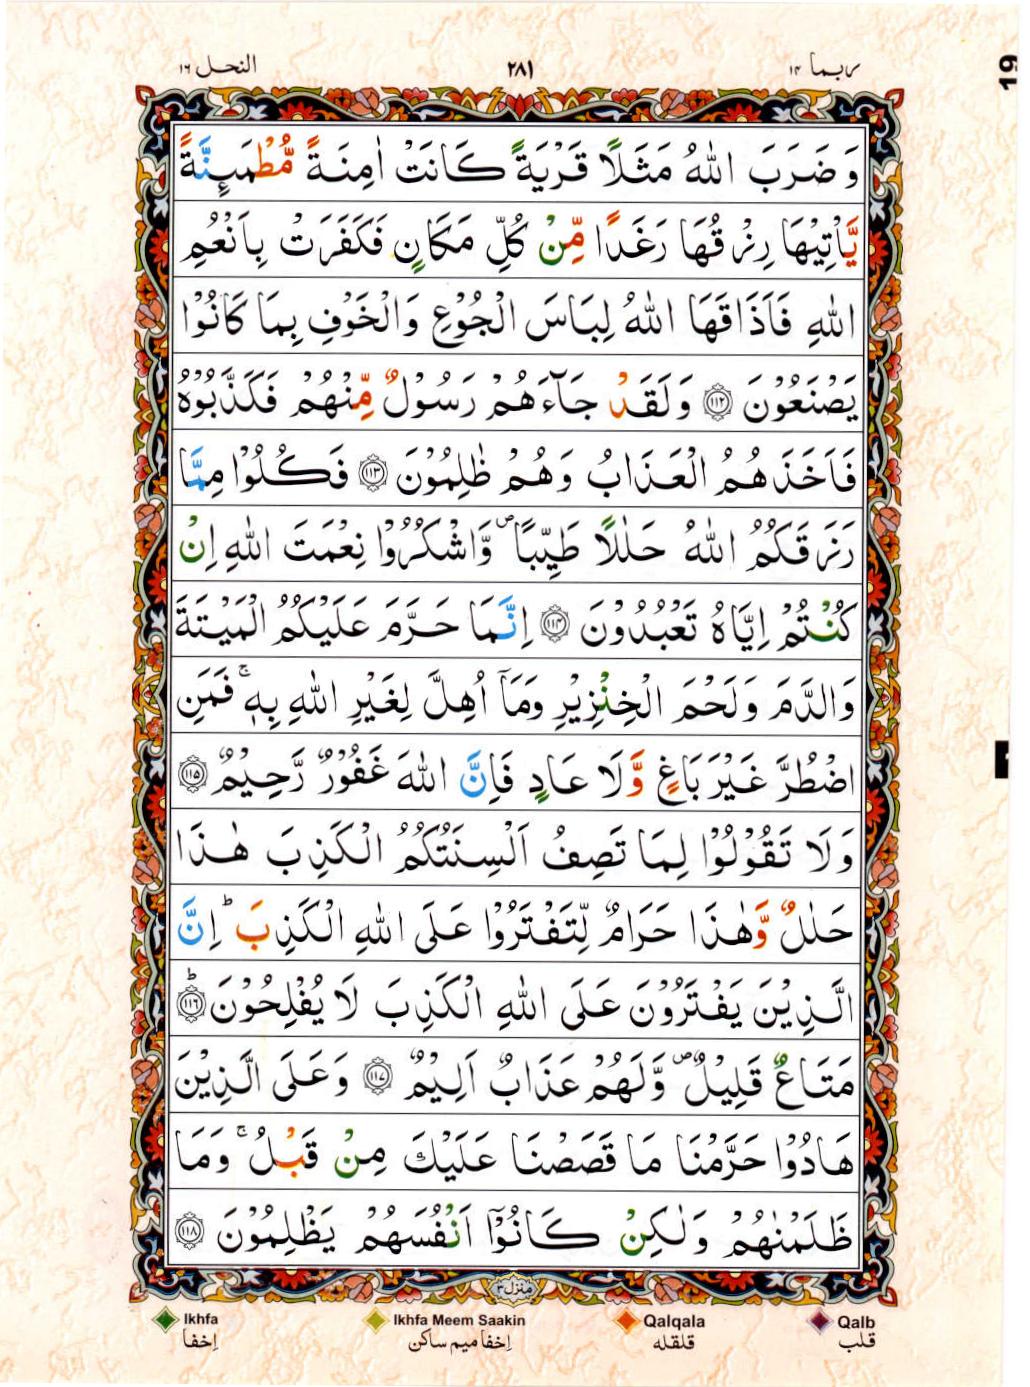 ربما ١٤ ٢٨١ النحل ١٦
19
وَضَرَبَ اللّٰهُ مَثَلًا قَرْيَةً كَانَتْ اٰمِنَةً مُّطْمَىِٕنَّةً
يَّاْتِيْهَا رِزْقُهَا رَغَدًا مِّنْ كُلِّ مَكَانٍ فَكَفَرَتْ بِاَنْعُمِ
اللّٰهِ فَاَذَاقَهَا اللّٰهُ لِبَاسَ الْجُوْعِ وَالْخَوْفِ بِمَا كَانُوْا
يَصْنَعُوْنَ ۝١١٢ وَلَقَدْ جَآءَهُمْ رَسُوْلٌ مِّنْهُمْ فَكَذَّبُوْهُ
فَاَخَذَهُمُ الْعَذَابُ وَهُمْ ظٰلِمُوْنَ ۝١١٣ فَكُلُوْا مِمَّا
رَزَقَكُمُ اللّٰهُ حَلٰلًا طَيِّبًا ۪ وَّاشْكُرُوْا نِعْمَتَ اللّٰهِ اِنْ
كُنْتُمْ اِيَّاهُ تَعْبُدُوْنَ ۝١١٤ اِنَّمَا حَرَّمَ عَلَيْكُمُ الْمَيْتَةَ
وَالدَّمَ وَلَحْمَ الْخِنْزِيْرِ وَمَاۤ اُهِلَّ لِغَيْرِ اللّٰهِ بِهٖ ۚ فَمَنِ
اضْطُرَّ غَيْرَ بَاغٍ وَّلَا عَادٍ فَاِنَّ اللّٰهَ غَفُوْرٌ رَّحِيْمٌ ۝١١٥
وَلَا تَقُوْلُوْا لِمَا تَصِفُ اَلْسِنَتُكُمُ الْكَذِبَ هٰذَا
حَلٰلٌ وَّهٰذَا حَرَامٌ لِّتَفْتَرُوْا عَلَى اللّٰهِ الْكَذِبَ ؕ اِنَّ
الَّذِيْنَ يَفْتَرُوْنَ عَلَى اللّٰهِ الْكَذِبَ لَا يُفْلِحُوْنَ ؕ۝١١٦
مَتَاعٌ قَلِيْلٌ ۪ وَّلَهُمْ عَذَابٌ اَلِيْمٌ ۝١١٧ وَعَلَى الَّذِيْنَ
هَادُوْا حَرَّمْنَا مَا قَصَصْنَا عَلَيْكَ مِنْ قَبْلُ ۚ وَمَا
ظَلَمْنٰهُمْ وَلٰكِنْ كَانُوْۤا اَنْفُسَهُمْ يَظْلِمُوْنَ ۝١١٨
منزل ٣
Ikhfa Ikhfa Meem Saakin Qalqala Qalb
إخفا إخفا ميم ساكن قلقله قلب